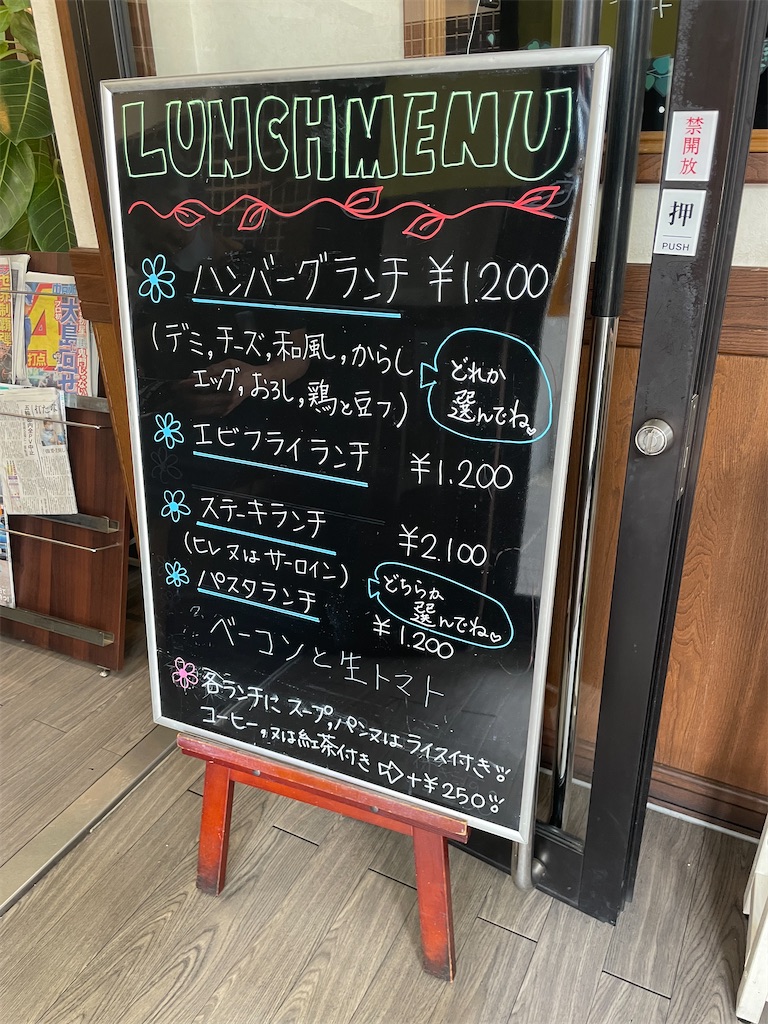 LUNCHMENU
ハンバーグランチ ¥1.200
(デミ,チーズ,和風,からし
エッグ,おろし,鶏と豆フ)
どれか
選んでね
エビフライランチ ¥1.200
ステーキランチ ¥2.100
(ヒレ又はサーロイン)
どちらか
選んでね
パスタランチ ¥1.200
ベーコンと生トマト
各ランチに スープ,パン又は ライス付き
コーヒー,又は紅茶付き ⇨ +¥250
禁開放
押
PUSH
打点